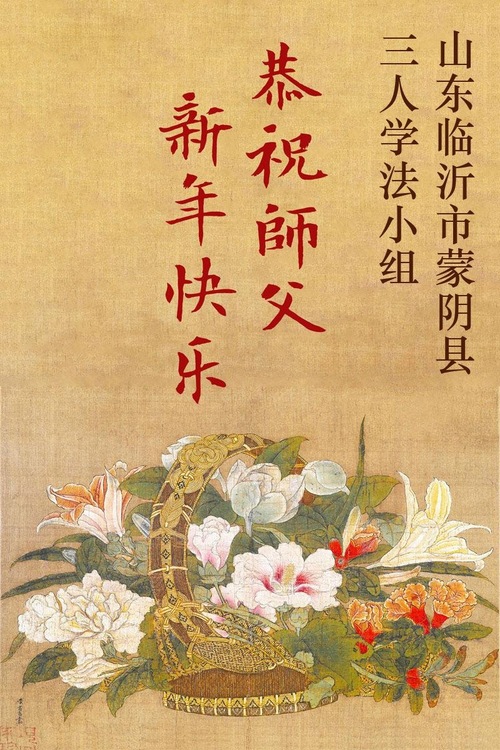 山东临沂市蒙阴县
三人学法小组
恭祝師父
新年快乐